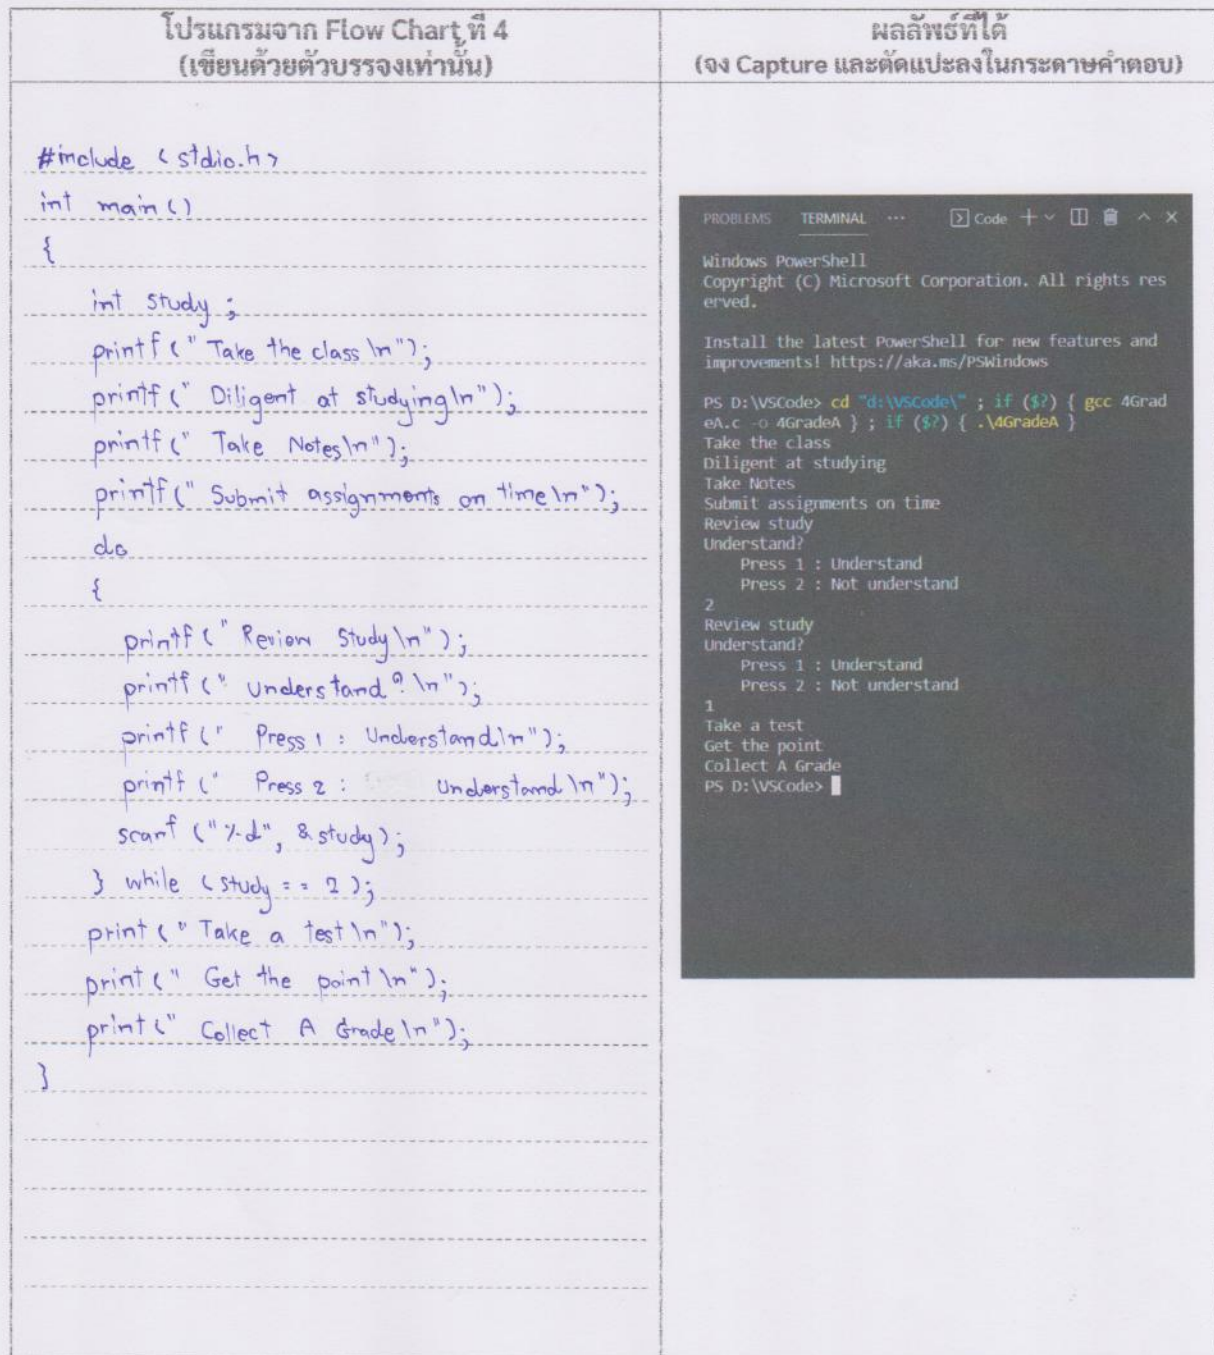 โปรแกรมจาก Flow Chart ที่ 4
(เขียนด้วยตัวบรรจงเท่านั้น)
#include <stdio.h>
int main()
{
int study ;
printf (" Take the class \n");
printf (" Diligent at studying\n");
printf (" Take Notes\n");
printf (" Submit assignments on time \n");
do
{
printf (" Review Study \n");
printf (" Understand? \n");
printf (" Press 1 : Understand\n");
printf (" Press 2 : Understand \n");
scanf ("%d", &study);
} while (study == 2);
print (" Take a test \n");
print (" Get the point \n");
print (" Collect A Grade \n");
}
ผลลัพธ์ที่ได้
(จง Capture และตัดแปะลงในกระดาษคำตอบ)
PROBLEMS TERMINAL ... Code
Windows PowerShell
Copyright (C) Microsoft Corporation. All rights res
erved.
Install the latest PowerShell for new features and
improvements! https://aka.ms/PSWindows
PS D:\VSCode> cd "d:\VSCode\" ; if ($?) { gcc 4Grad
eA.c -o 4GradeA } ; if ($?) { .\4GradeA }
Take the class
Diligent at studying
Take Notes
Submit assignments on time
Review study
Understand?
Press 1 : Understand
Press 2 : Not understand
2
Review study
Understand?
Press 1 : Understand
Press 2 : Not understand
1
Take a test
Get the point
Collect A Grade
PS D:\VSCode>